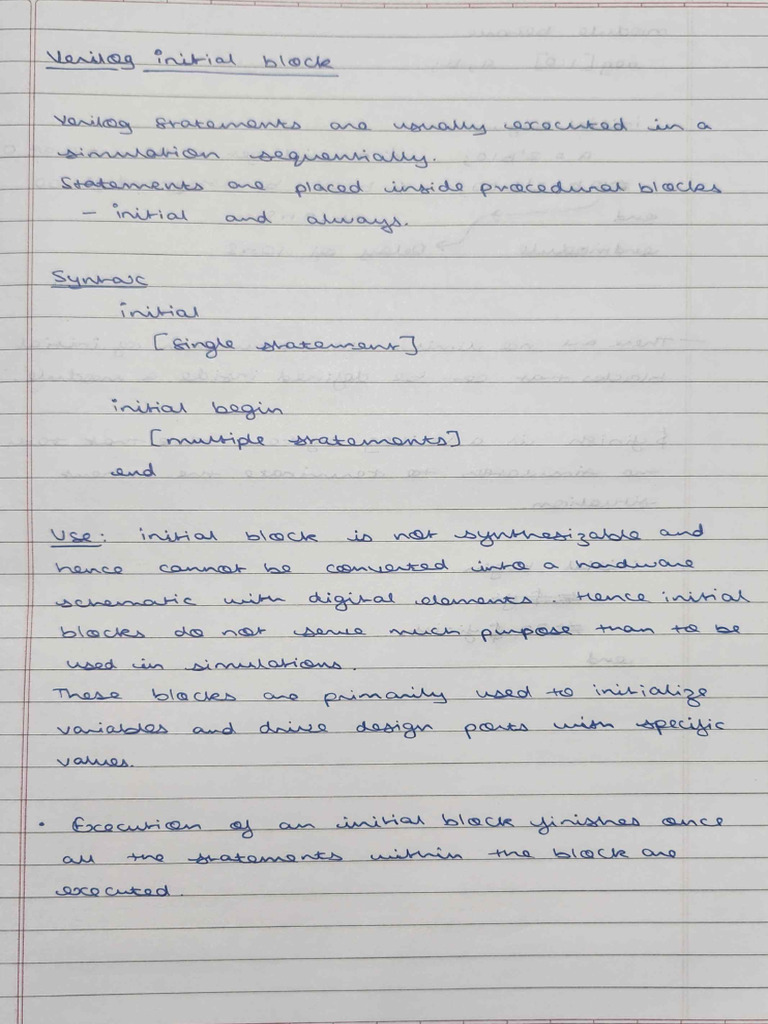 Verilog initial block
Verilog statements are usually executed in a
simulation sequentially.
Statements are placed inside procedural blocks
- initial and always.
Syntax
initial
[single statement]
initial begin
[multiple statements]
end
Use: initial block is not synthesizable and
hence cannot be converted into a hardware
schematic with digital elements. Hence initial
blocks do not serve much purpose than to be
used in simulations.
These blocks are primarily used to initialize
variables and drive design ports with specific
values.
• Execution of an initial block finishes once
all the statements within the block are
executed.